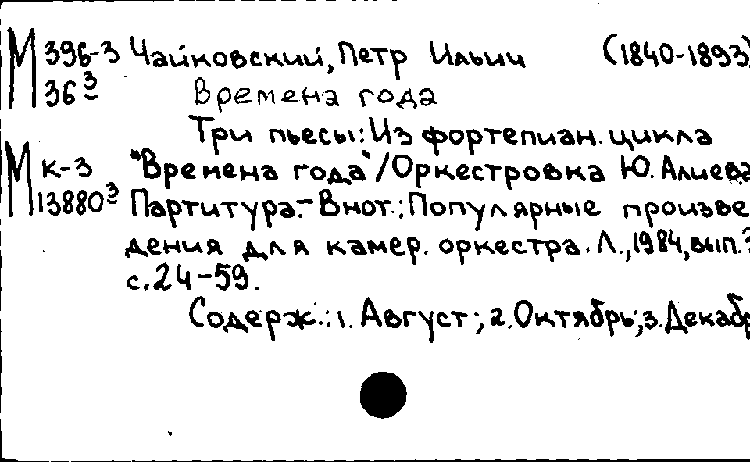 М 396-3 Чайковский, Петр Ильич (1840-1893)
36 3 Времена года
Три пьесы: Из фортепиан. цикла
М к-3 "Времена года"/Оркестровка Ю. Алиева
13880 3 Партитура.- В нот.: Популярные произве-
дения для камер. оркестра. Л., 1984, вып. 3
с. 24-59.
Содерж.: 1. Август; 2. Октябрь; 3. Декабр